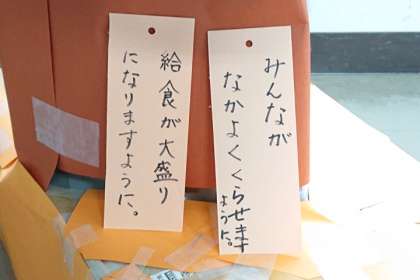 みんなが
なかよくくらせます
ように。
給食が大盛り
になりますように。